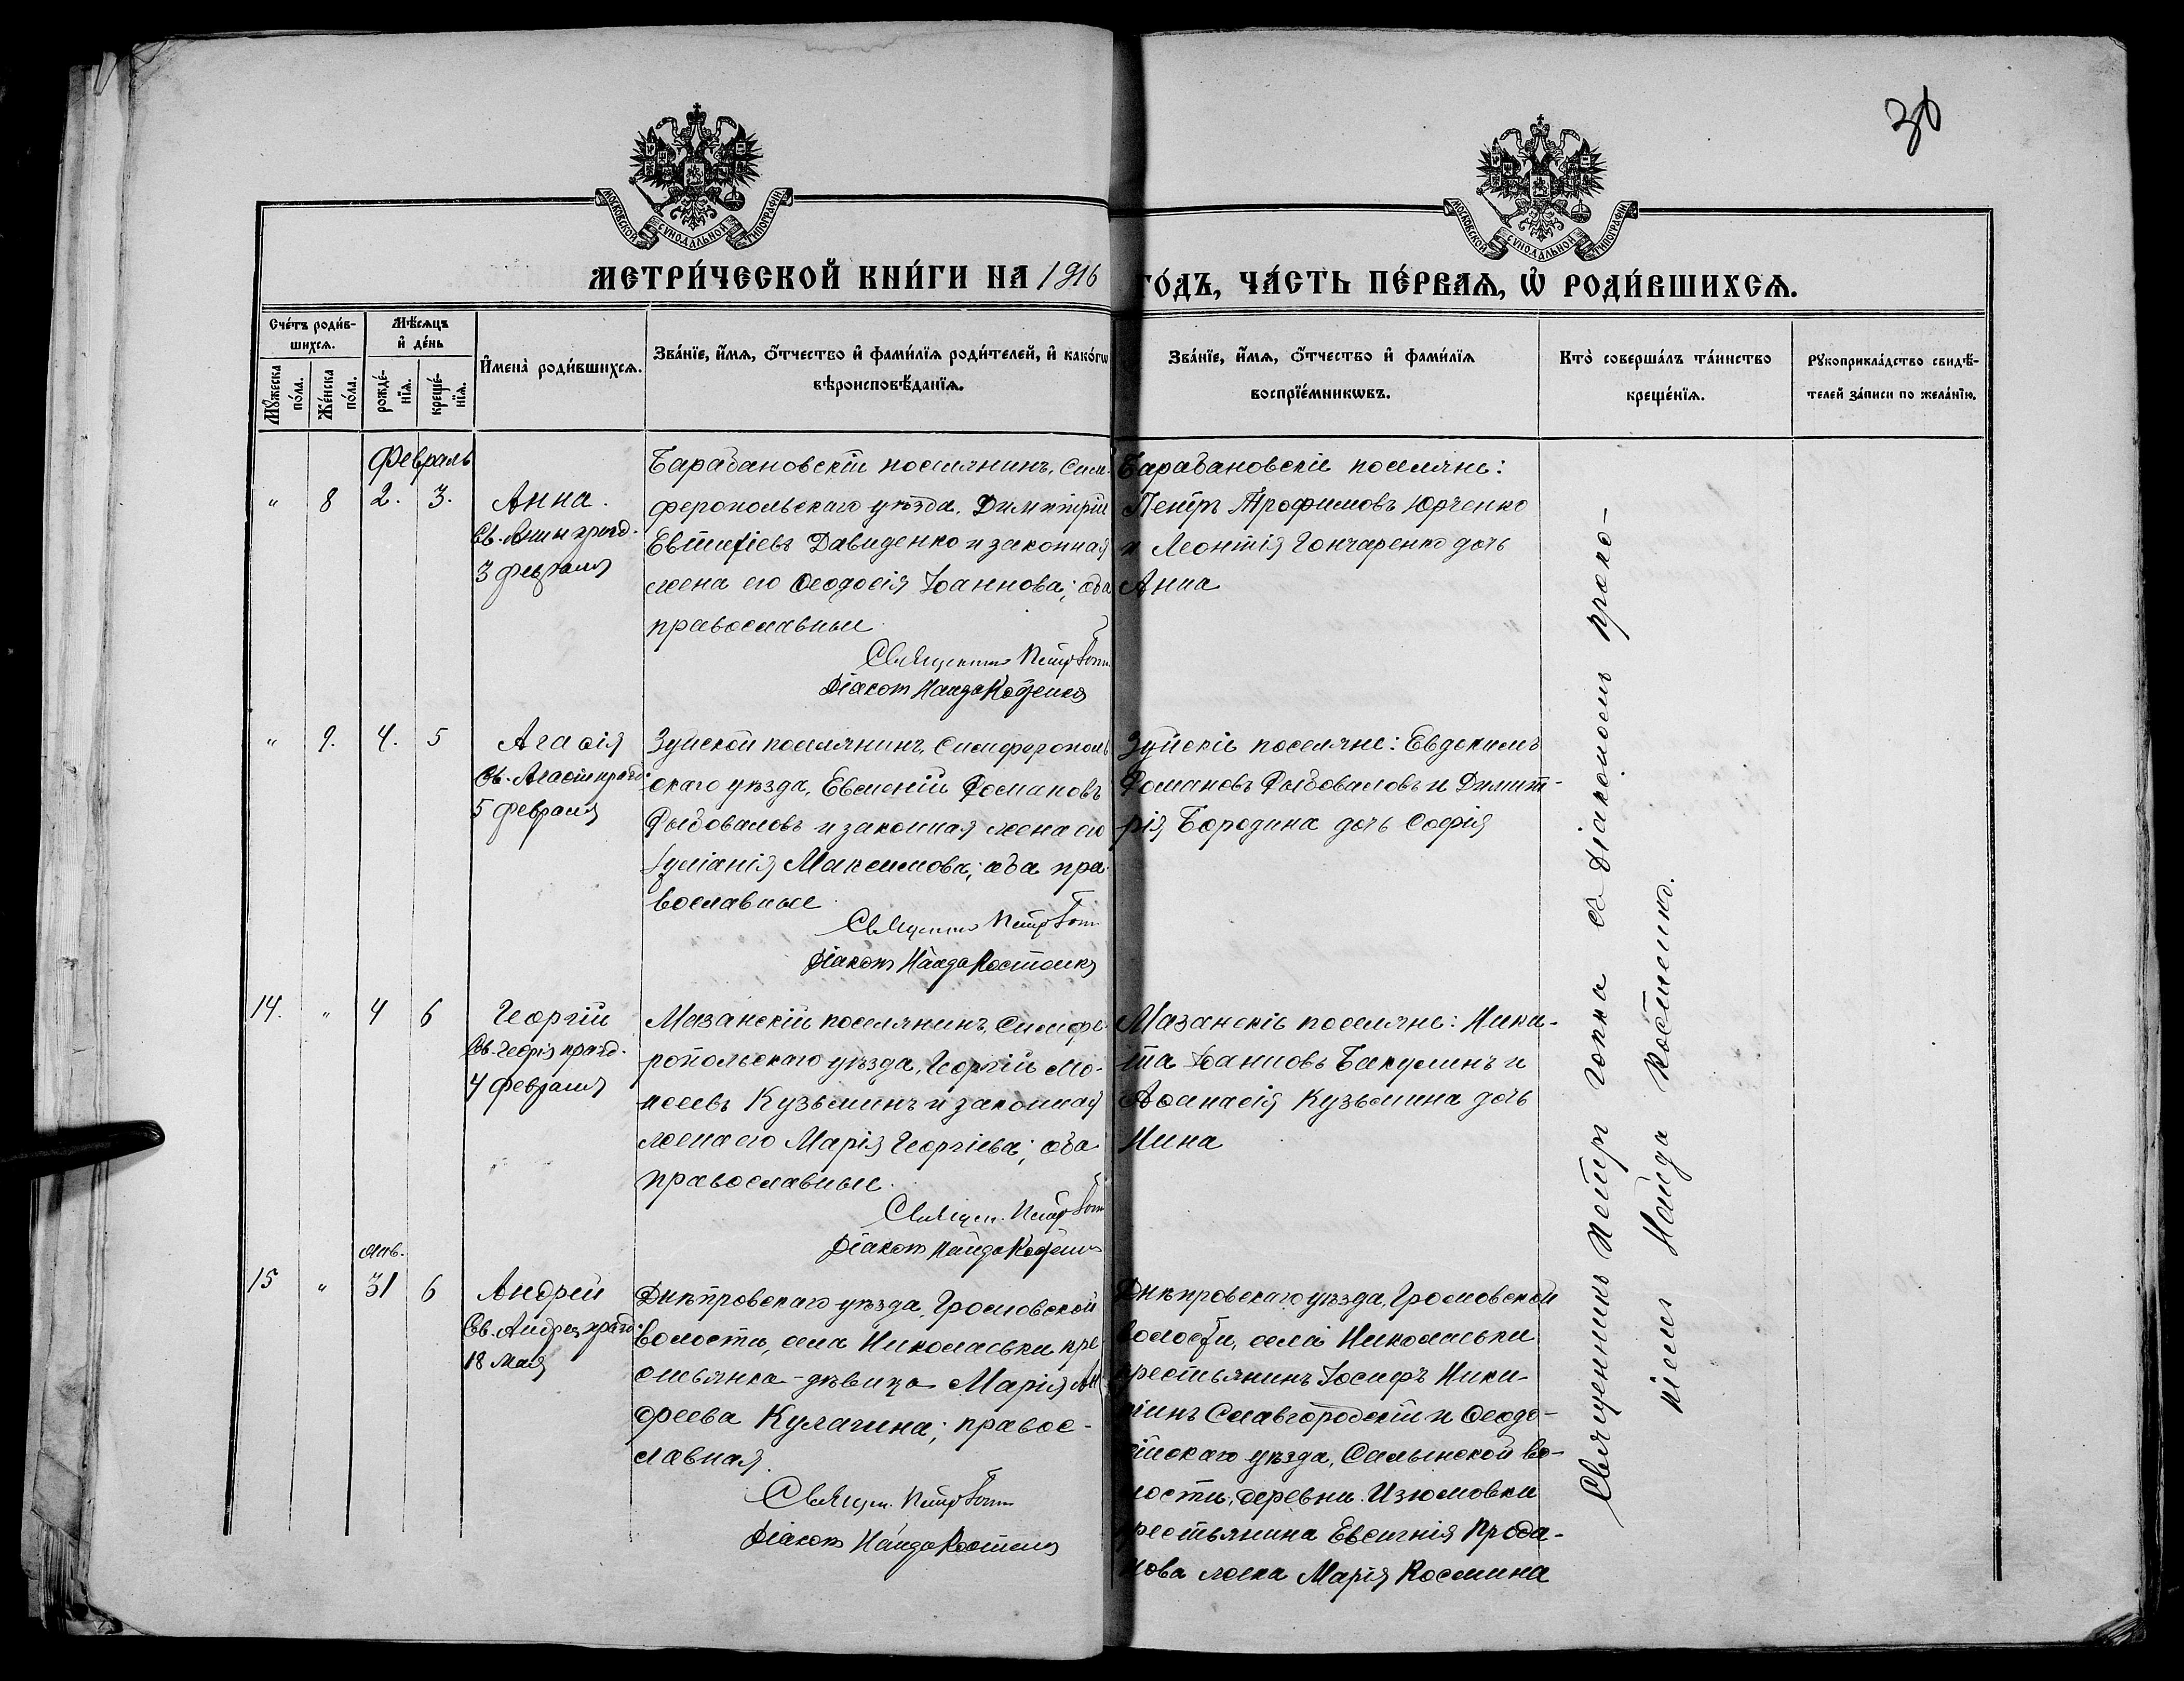 30
МОСКОВСКОЙ СѴНОДАЛЬНОЙ ТИПОГРАФІИ
МОСКОВСКОЙ СѴНОДАЛЬНОЙ ТИПОГРАФІИ
МЕТРИ́ЧЕСКОЙ КНИ́ГИ НА 1916 ГО́ДЪ, ЧА́СТЬ ПЕ́РВАѦ, Ѡ҆ РОДИ́ВШИХСѦ.
Сче́тъ роди́в-
шихсѧ.
Мꙋ́жеска по́ла.
Же́нска по́ла.
Мѣ́сѧцъ
и҆ де́нь
рожде́-
нїѧ.
креще́-
нїѧ.
И҆мена̀ роди́вшихсѧ.
Зва́нїе, и҆́мѧ, ѻ҆́тчество и҆ фами́лїѧ роди́телей, и҆ како́гѡ
вѣроисповѣ́данїѧ.
Зва́нїе, и҆́мѧ, ѻ҆́тчество и҆ фами́лїѧ
воспрїе́мникѡвъ.
Кто̀ соверша́лъ та́инство
креще́нїѧ.
Рꙋкоприкла́дство свидѣ́-
телей за́писи по жела́нїю.
Февраль
" 8 2. 3.
Анна.
Св. Анны празд.
3 февраля
Барабановскій поселянинъ, Сим-
феропольскаго уѣзда, Димитрій
Евтихіевъ Давиденко и законная
жена его Ѳеодосія Іоаннова; оба
православные.
Священникъ Петръ
Діаконъ Найда Костенко
Барабановскіе поселяне:
Петръ Трофимовъ Юрченко
и Леонтія Гончаренко дочь
Анна
" 9. 4. 5
Агаѳія
Св. Агаѳіи празд.
5 февраля
Зуйской поселянинъ, Симферополь
скаго уѣзда, Евгеній Романовъ
Рыбоваловъ и законная жена его
Іуліанія Максимова; оба пра-
вославные.
Священникъ Петръ
Діаконъ Найда Костенко
Зуйскіе поселяне: Евдокимъ
Романовъ Рыбоваловъ и Димит-
рія Бородина дочь Софія
14. " 4 6
Георгій
Св. Георгія празд.
4 февраля
Мазанскій поселянинъ, Симфе-
ропольскаго уѣзда, Георгій Мо-
исеевъ Кузьминъ и законная
жена его Марія Георгіева; оба
православные.
Священ. Петръ
Діаконъ Найда Костенко
Мазанскіе поселяне: Ники-
та Іоанновъ Бакулинъ и
Аѳанасія Кузьмина дочь
Нина
янв.
15 " 31 6
Андрей
Св. Андрея празд.
18 мая
Днѣпровскаго уѣзда, Громовской
волости, села Николаевки кре
стьянка-дѣвица Марія Ан
дреева Кулагина; правос-
лавная.
Священ. Петръ
Діаконъ Найда Костенко
Днѣпровскаго уѣзда, Громовской
волости, села Николаевки
крестьянинъ Іосифъ Ники-
тинъ Славгородскій и Ѳеодо-
сійскаго уѣзда, Салынской во-
лости, деревни Изюмовки
крестьянина Евсигнія Прода-
нова жена Марія Космина
Священникъ Петръ Гопка съ Діакономъ Проко-
піемъ Найда Костенко.